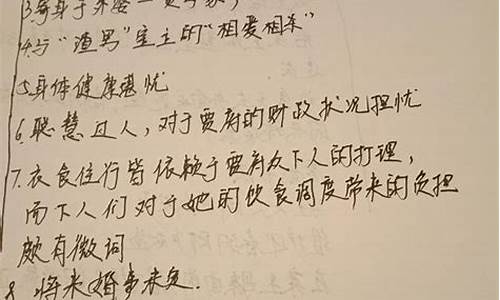 3.寄身于外婆一贾
4.与“渣男”宝玉的“相爱相杀”
5.身体健康堪忧
6.聪慧过人，对于贾府的财政状况担忧
7.衣食住行皆依赖于贾府及下人的打理，
而下人们对于她的饮食调度带来的负担
颇有微词
8.将来婚事未定.